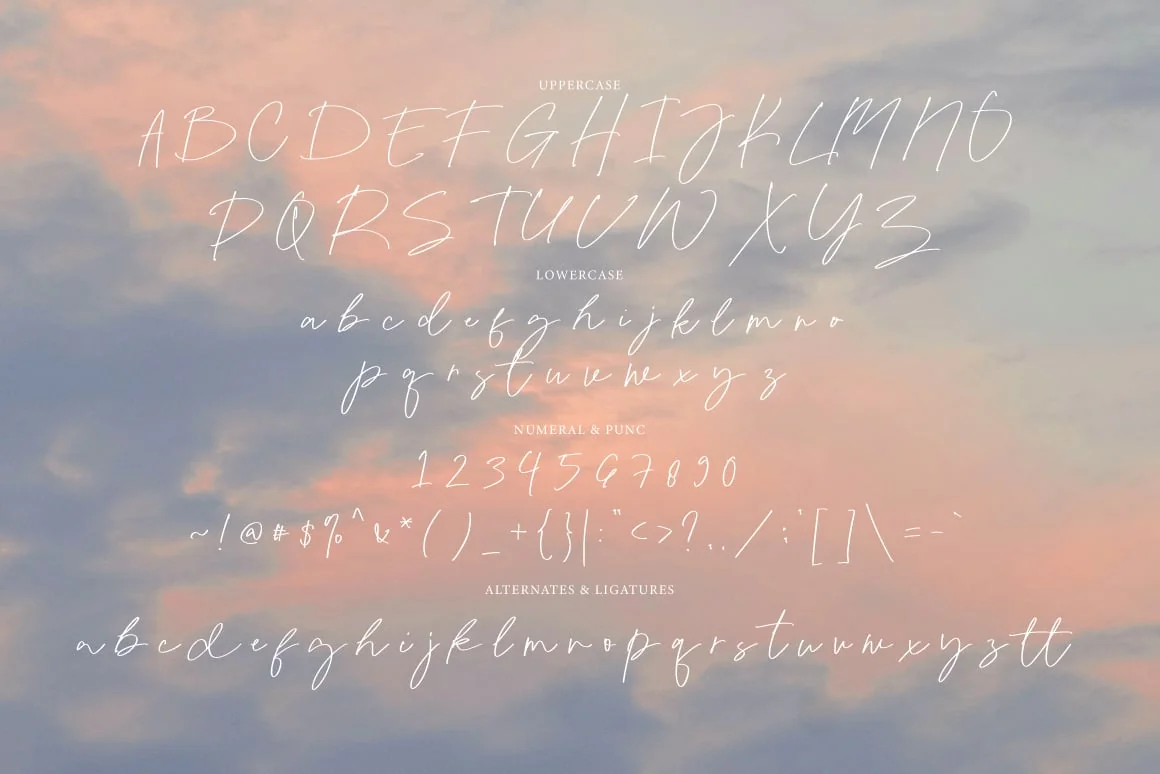 UPPERCASE
A B C D E F G H I J K L M N O
P Q R S T U V W X Y Z
LOWERCASE
a b c d e f g h i j k l m n o
p q r s t u v w x y z
NUMERAL & PUNC
1 2 3 4 5 6 7 8 9 0
~ ! @ # $ % ^ & * ( ) _ + { } | : " < > ? . , / ; ' [ ] \ = - `
ALTERNATES & LIGATURES
a b c d e f g h i j k l m n o p q r s t u v w x y z tt